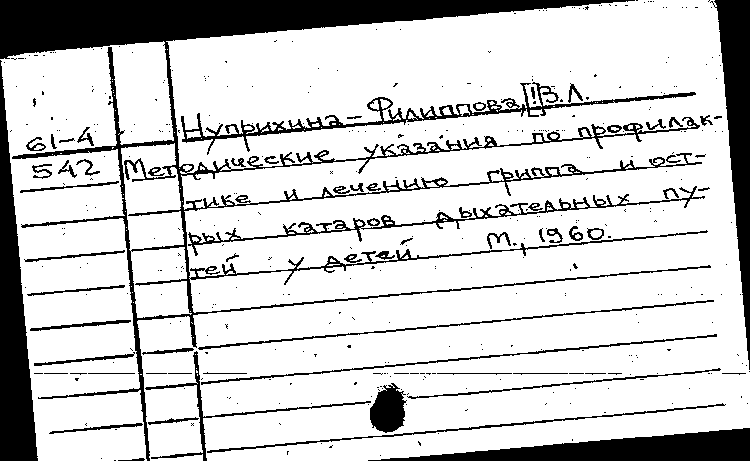 61-4
542
Нуприхина-Филиппова,[!]В.Л.
Методические указания по профилак-
тике и лечению гриппа и ост-
рых катаров дыхательных пу-
тей у детей. М., 1960.